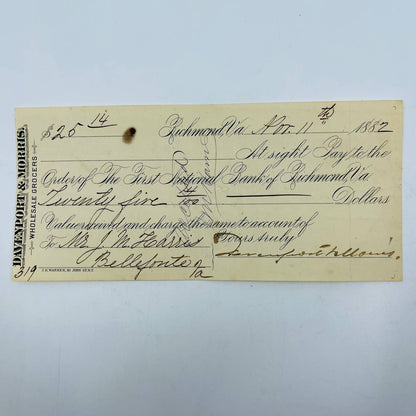 DAVENPORT & MORRIS,
WHOLESALE GROCERS
$ 25 14
Richmond, Va Nov. 11th 1882
At sight Pay to the
Order of The First National Bank of Richmond, Va.
Twenty five 14/100 Dollars
Value received and charge the same to account of
To Mr J. M. Harris Yours truly
Bellefonte Davenport & Morris
319